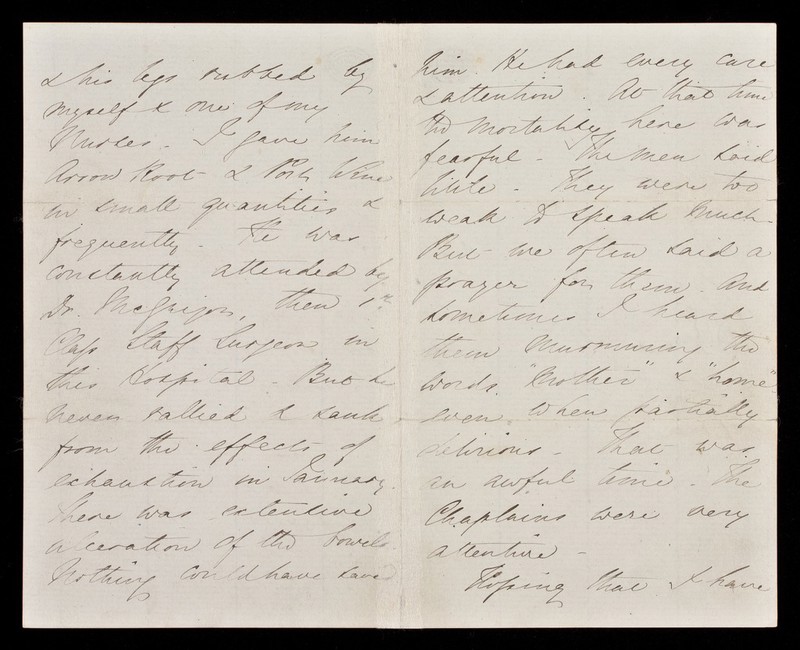 & his legs rubbed by
myself & one of my
Nurses. I gave him
Arrow Root & Port Wine
in small quantities &
frequently. He was
constantly attended by
Dr. McGrigor, then 1st
Class Staff Surgeon in
this Hospital. But he
never rallied & sank
from the effects of
exhaustion in January.
There was extensive
ulceration of the bowels.
Nothing could have saved
him. He had every care
& attention. At that time
the mortality here was
fearful. The men said
little. They were too
weak to speak much.
But we often said a
prayer for them. And
sometimes I heard
them murmuring the
words "Mother" & "home"
even when partially
delirious. That was
an awful time. The
Chaplains were very
attentive -
Hoping that I have